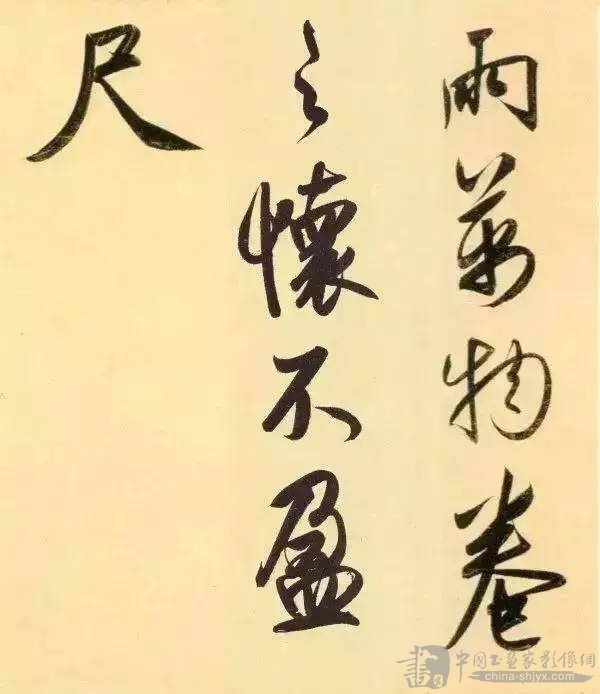 雨萬物卷
之懷不盈
尺
書
中國书画家影像網
china-shjyx.com